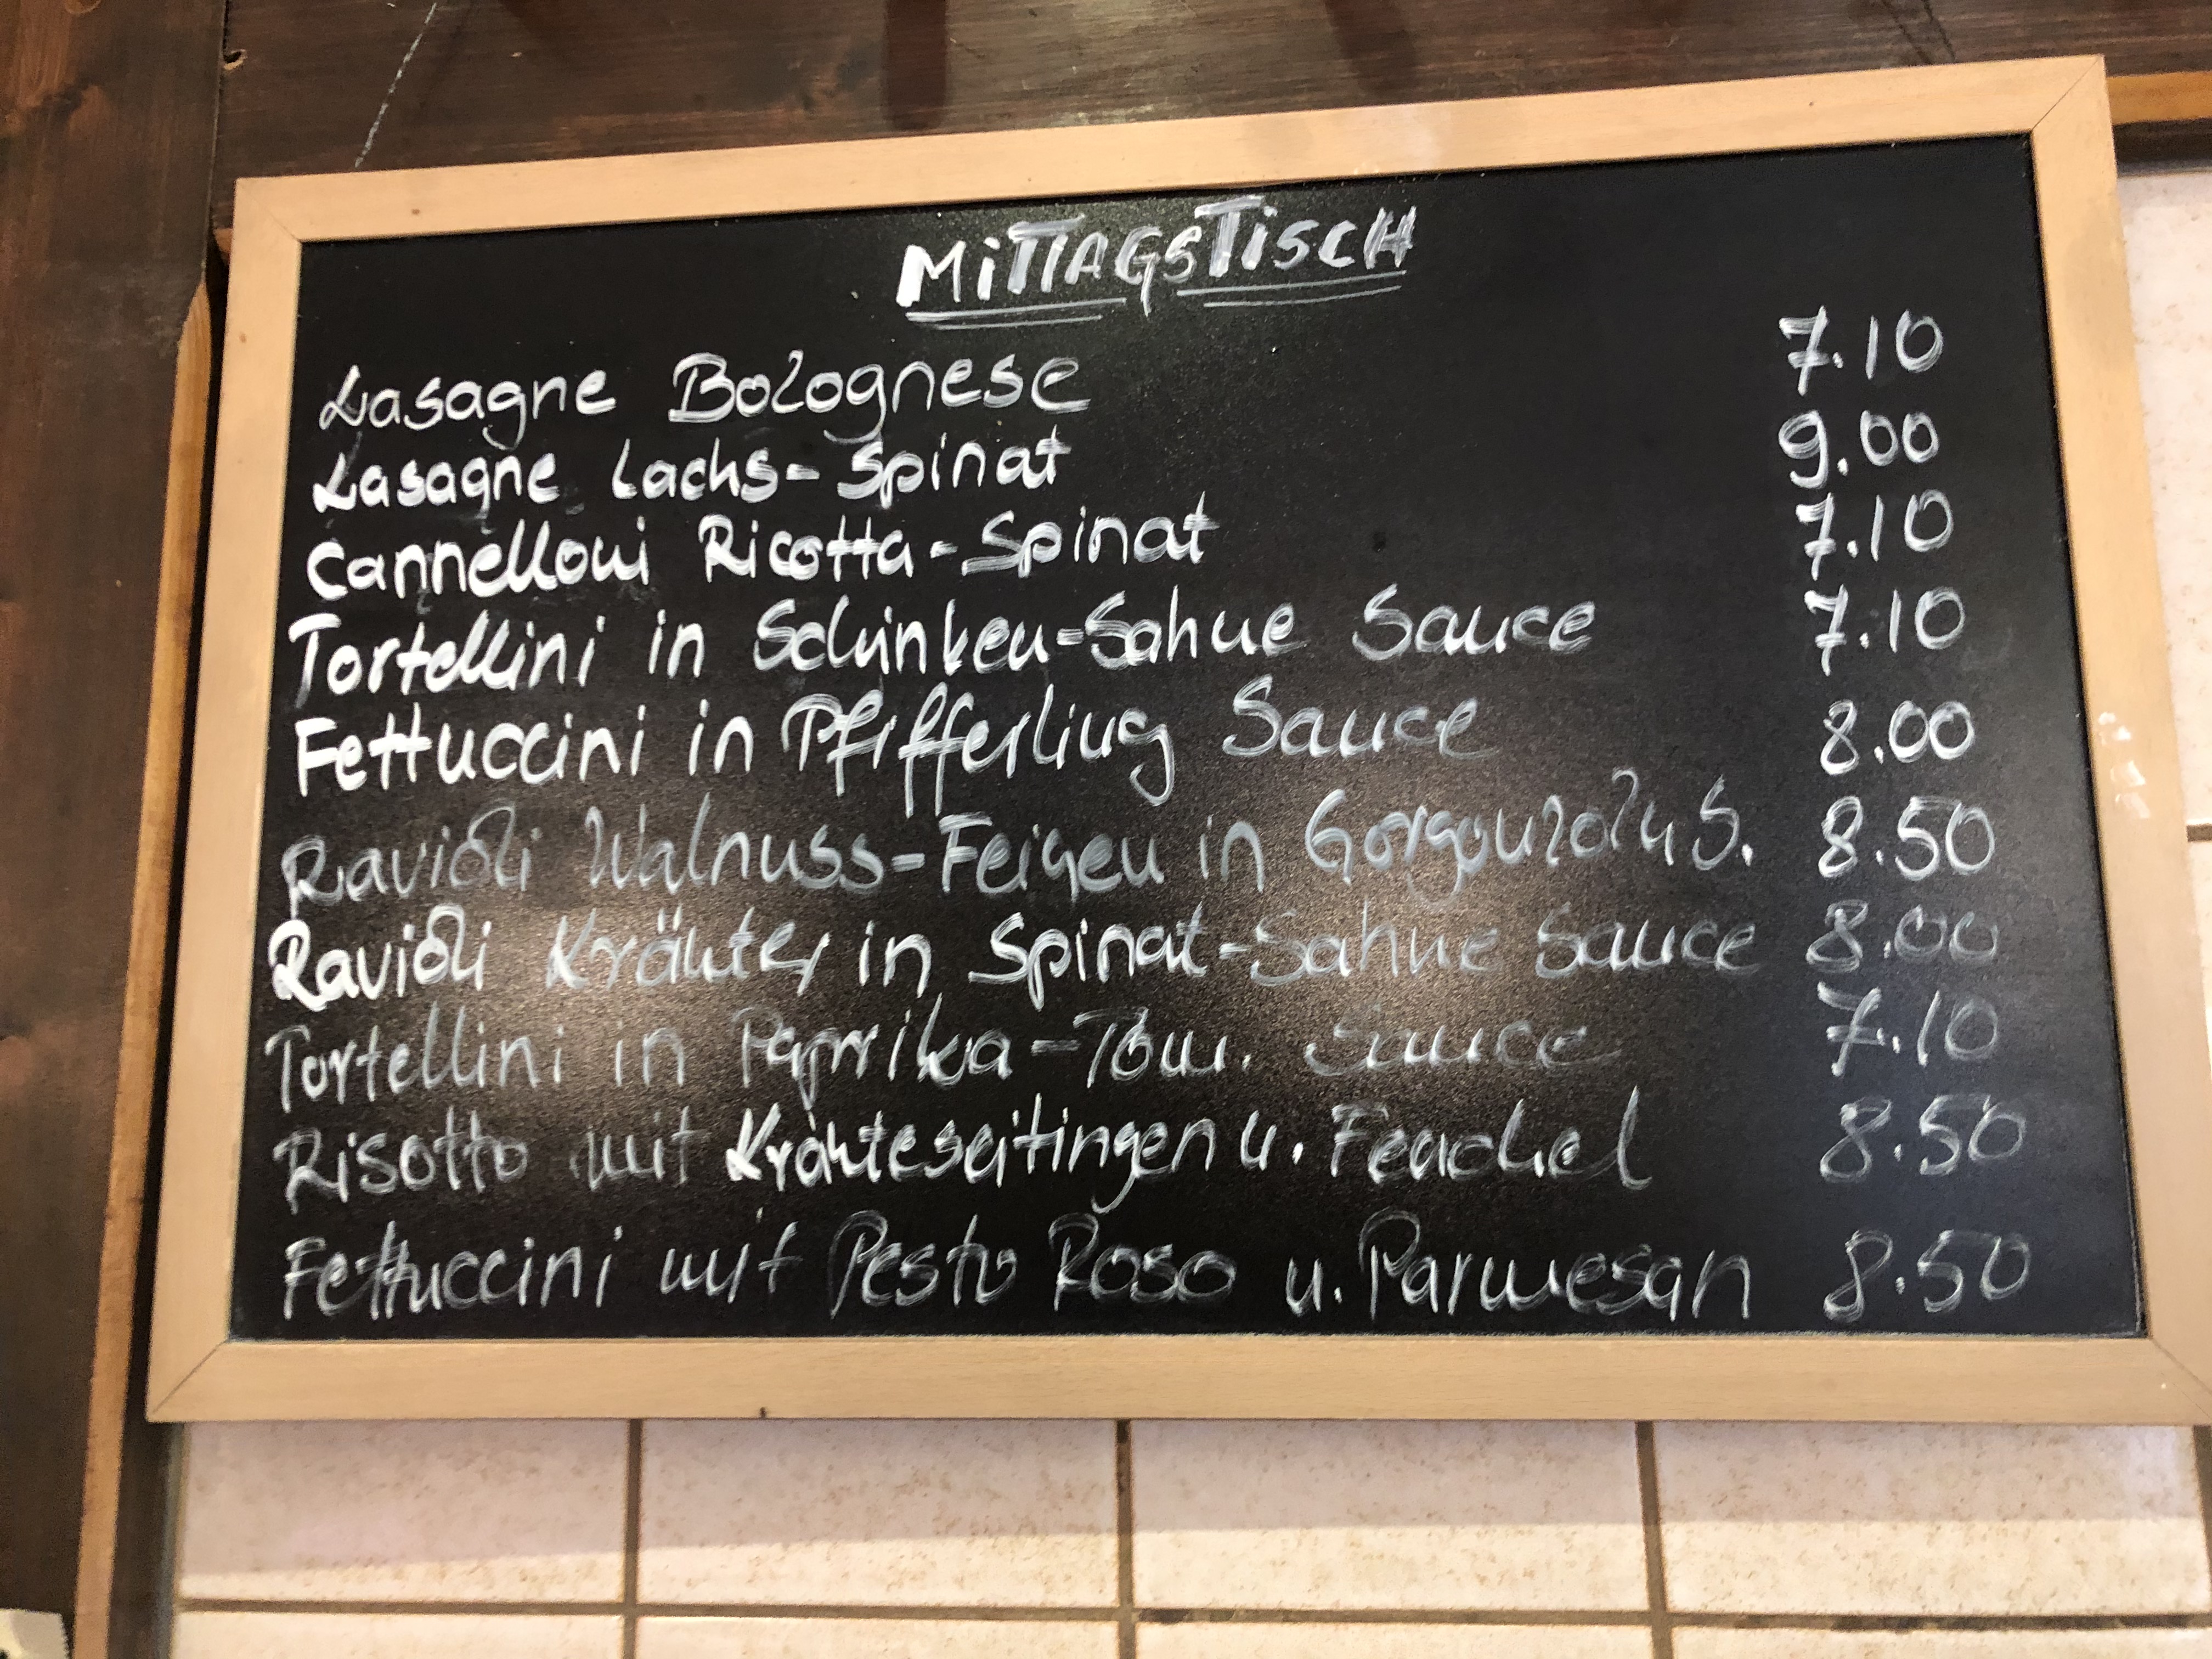 MiTTAGSTiSCH
Lasagne Bolognese 7.10
Lasagne Lachs-Spinat 9.00
Cannelloni Ricotta-Spinat 7.10
Tortellini in Schinken-Sahne Sauce 7.10
Fettuccini in Pfifferling Sauce 8.00
Ravioli Walnuss-Feigen in Gorgonzola S. 8.50
Ravioli Kräuter in Spinat-Sahne Sauce 8.00
Tortellini in Paprika-Tom. Sauce 7.10
Risotto mit Kräuteseitingen u. Fenchel 8.50
Fettuccini mit Pesto Roso u. Parmesan 8.50